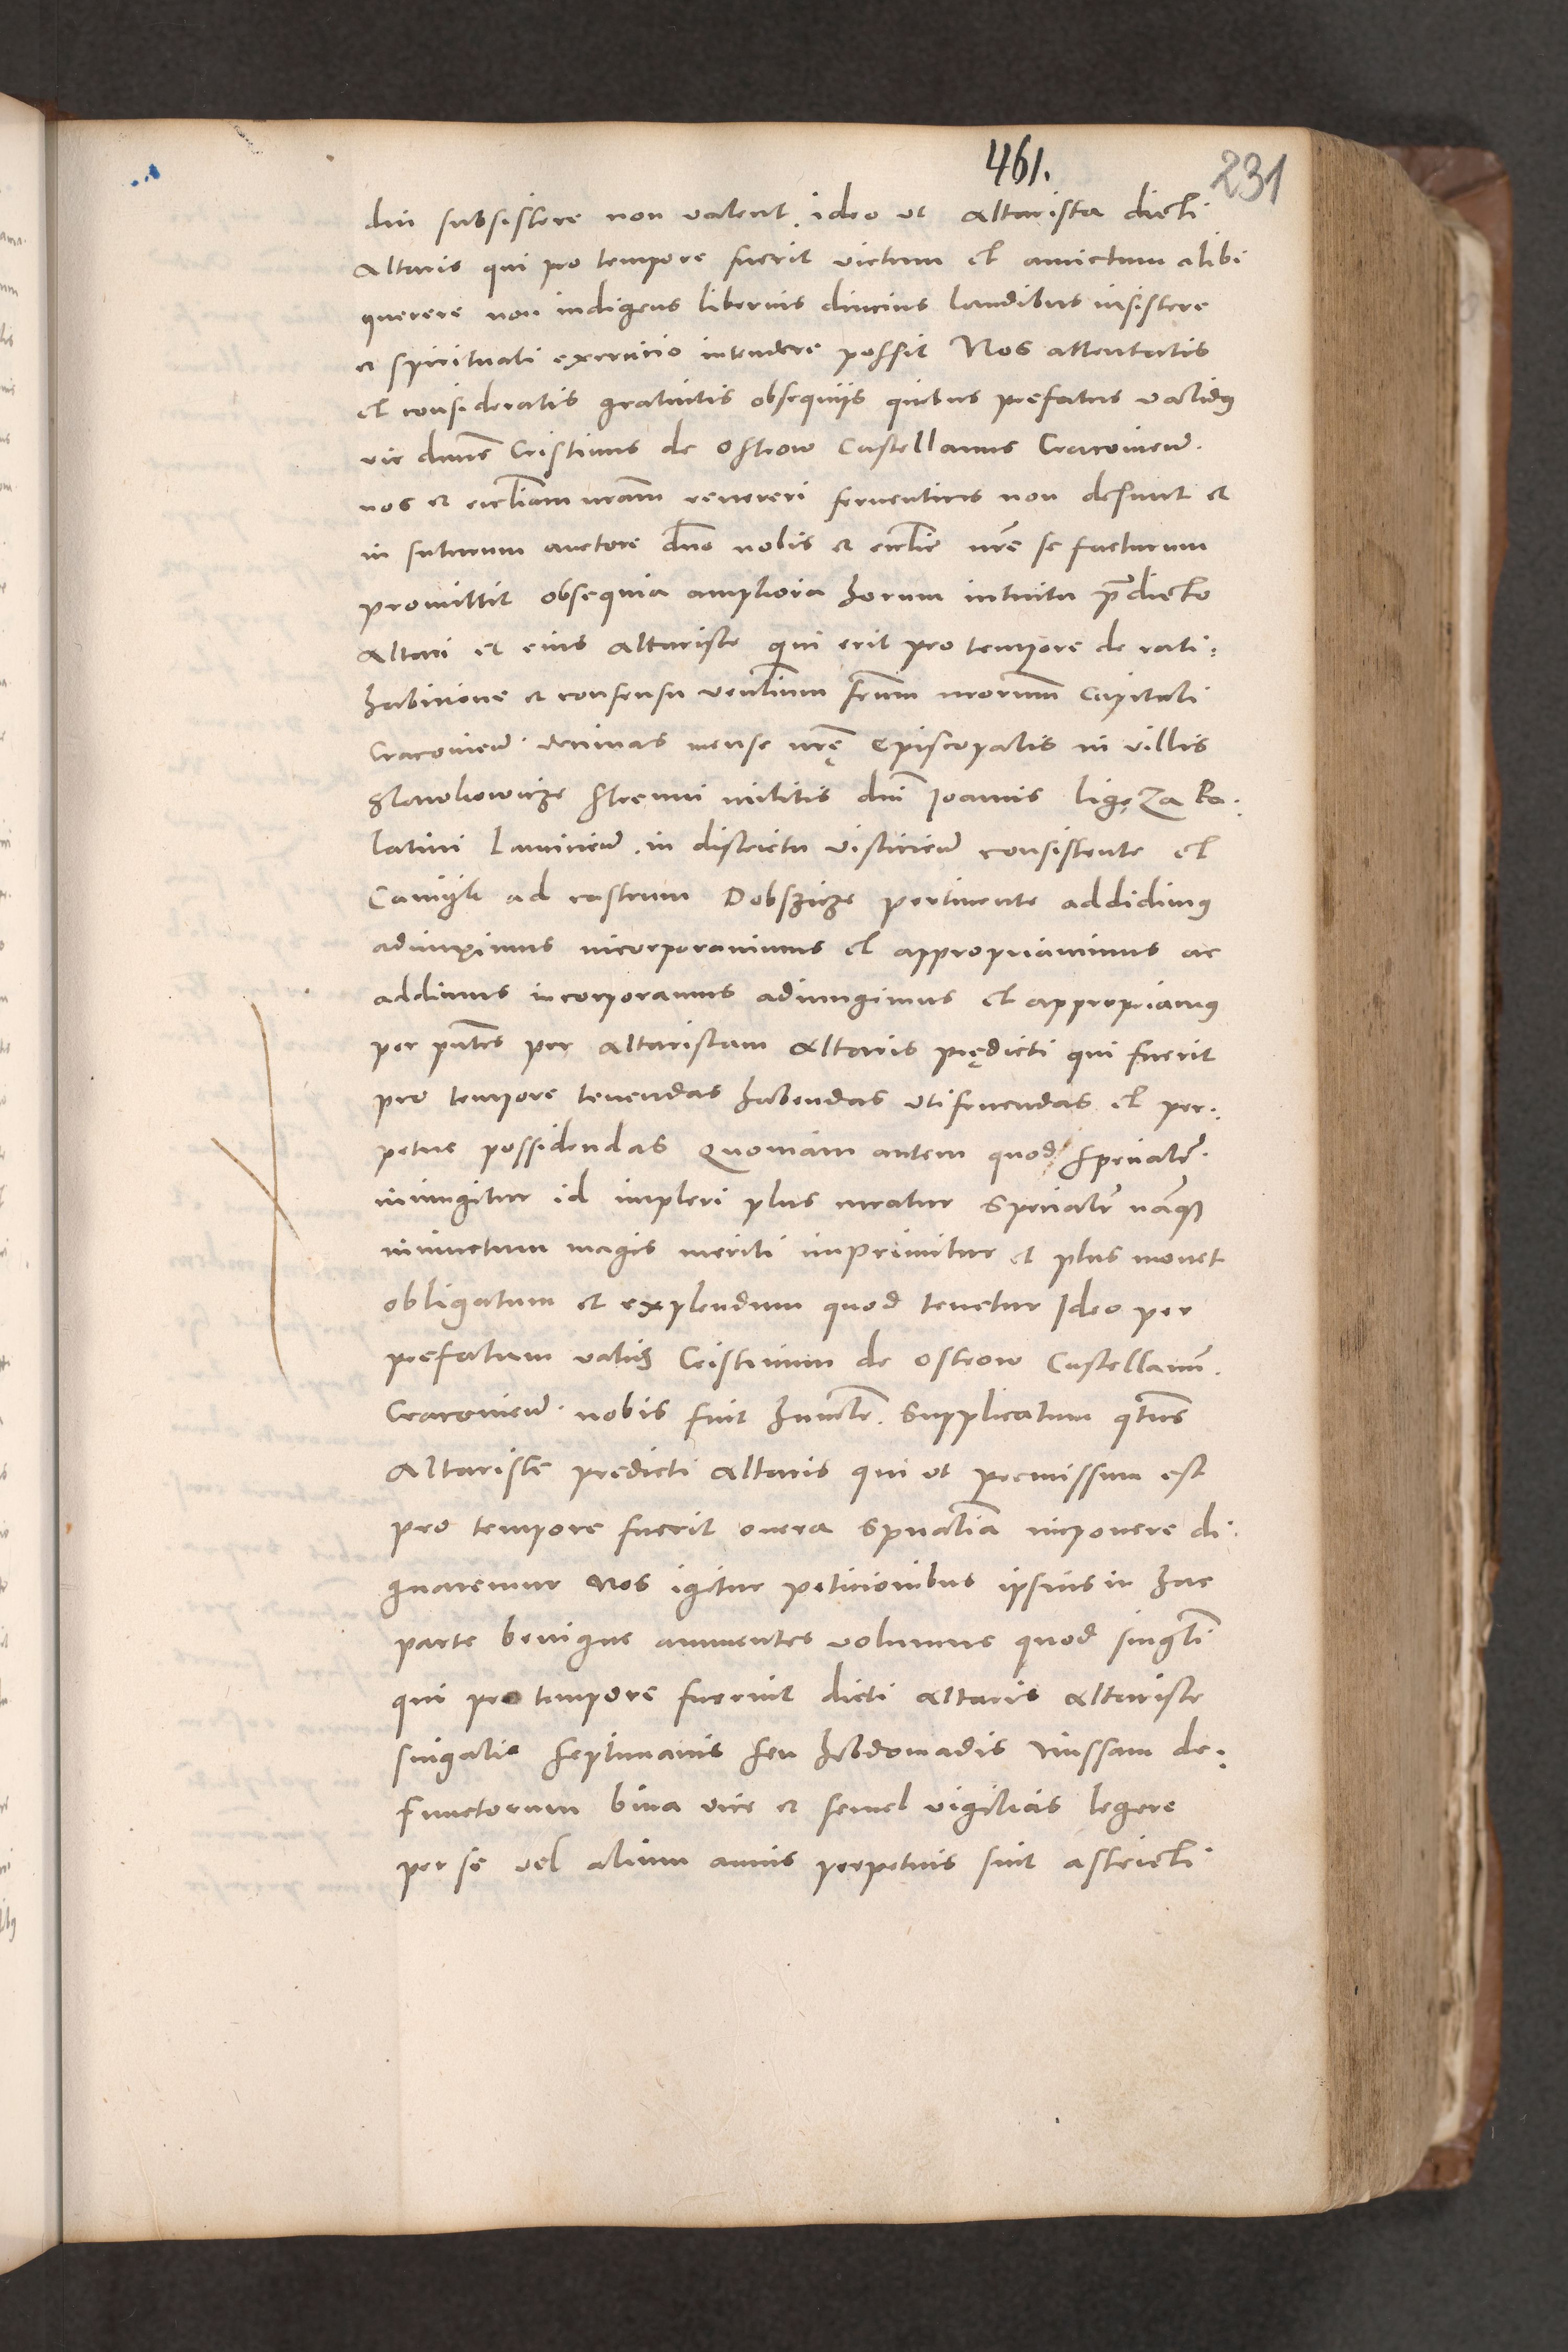 461.
231
diu subsistere non valent. ideo ut Altarista dicti
Altaris qui pro tempore fuerit victum et amictum alibi
querere non indigens liberius divinis laudibus insistere
et spirituali exercicio intendere possit Nos attentatis
et consideratis gratuitis obsequiis quibus prefatus validus
vir dnus Cristinus de Ostrow Castellanus Cracovien.
nos et eccliam nram revereri ferventius non desunt et
in futurum auctore dno nobis et ecclie nre se facturum
promittit obsequia ampliora horum intuitu predicto
Altari et eius Altariste qui erit pro tempore de rati:
habicione et consensu venlium frum nrorum Capituli
Cracovien. decimas mense nrę Episcopalis in villis
strenui militis dni Joannis Ligęza Pa.
latini Lancicien. in districtu vislicien consistente et
ad castrum Dobszicze pertinente addidimus
adiunximus incorporavimus et appropriavimus ac
addimus incorporamus adiungimus et appropriamus
per pntes per Altaristam Altaris prędicti qui fuerit
pro tempore tenendas habendas utifruendas et per.
petue possidendas Quoniam autem quod specialr.
iniungitur id impleri plus curatur Specialr namque
iniunctum magis menti imprimitur et plus movet
obligatum et explendum quod tenetur Ideo per
prefatum validum Cristinum de Ostrow Castellanum.
Cracovien. nobis fuit humilr. Supplicatum qtenus
Altariste predicti Altaris qui ut premissum est
pro tempore fuerit onera spualia imponere di.
gnaremur Nos igitur peticionibus ipsius in hac
parte benigne annuentes volumus quod singuli
qui pro tempore fuerint dicti Altaris Altariste
singulis septimanis seu hebdomadis missam de.
functorum bina vice et semel vigilias legere
per se vel alium annis perpetuis sint astricti